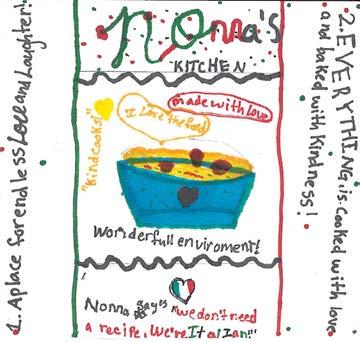 Nonna's
KITCHEN
made with love
I Love the food
"Kind cooks!"
Wonderfull enviroment!
Nonna says "we don't need
a recipe, We're Italian!"
1. A place for endless Love and Laughter!
2. EVERYTHING is cooked with love
and baked with kindness!